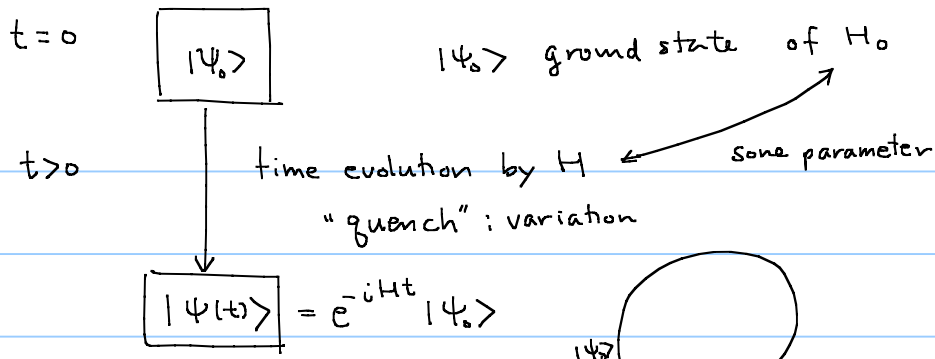 t = 0 |ψ₀> |ψ₀> ground state of H₀
t>0 time evolution by H some parameter
"quench" : variation
|ψ(t)> = e^{-iHt} |ψ₀>
|ψ₀>